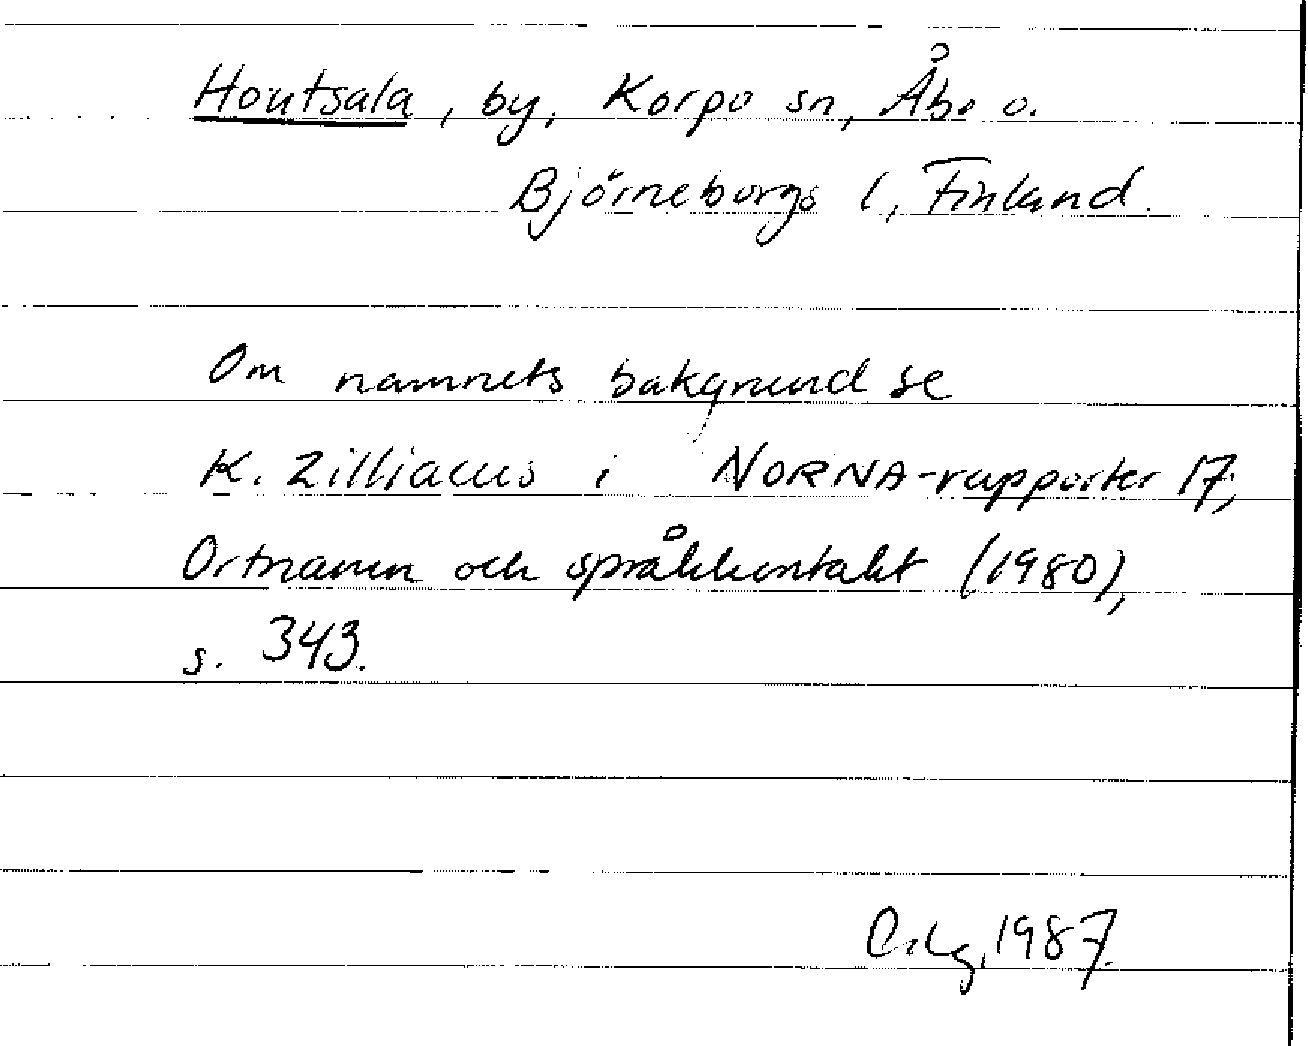 Houtsala, by, Korpo sn, Åbo o.
Björneborgs l, Finland.
Om namnets bakgrund se
K. Zilliacus i NORNA-rapporter 17,
Ortnamn och språkkontakt (1980),
s. 343.
1987.